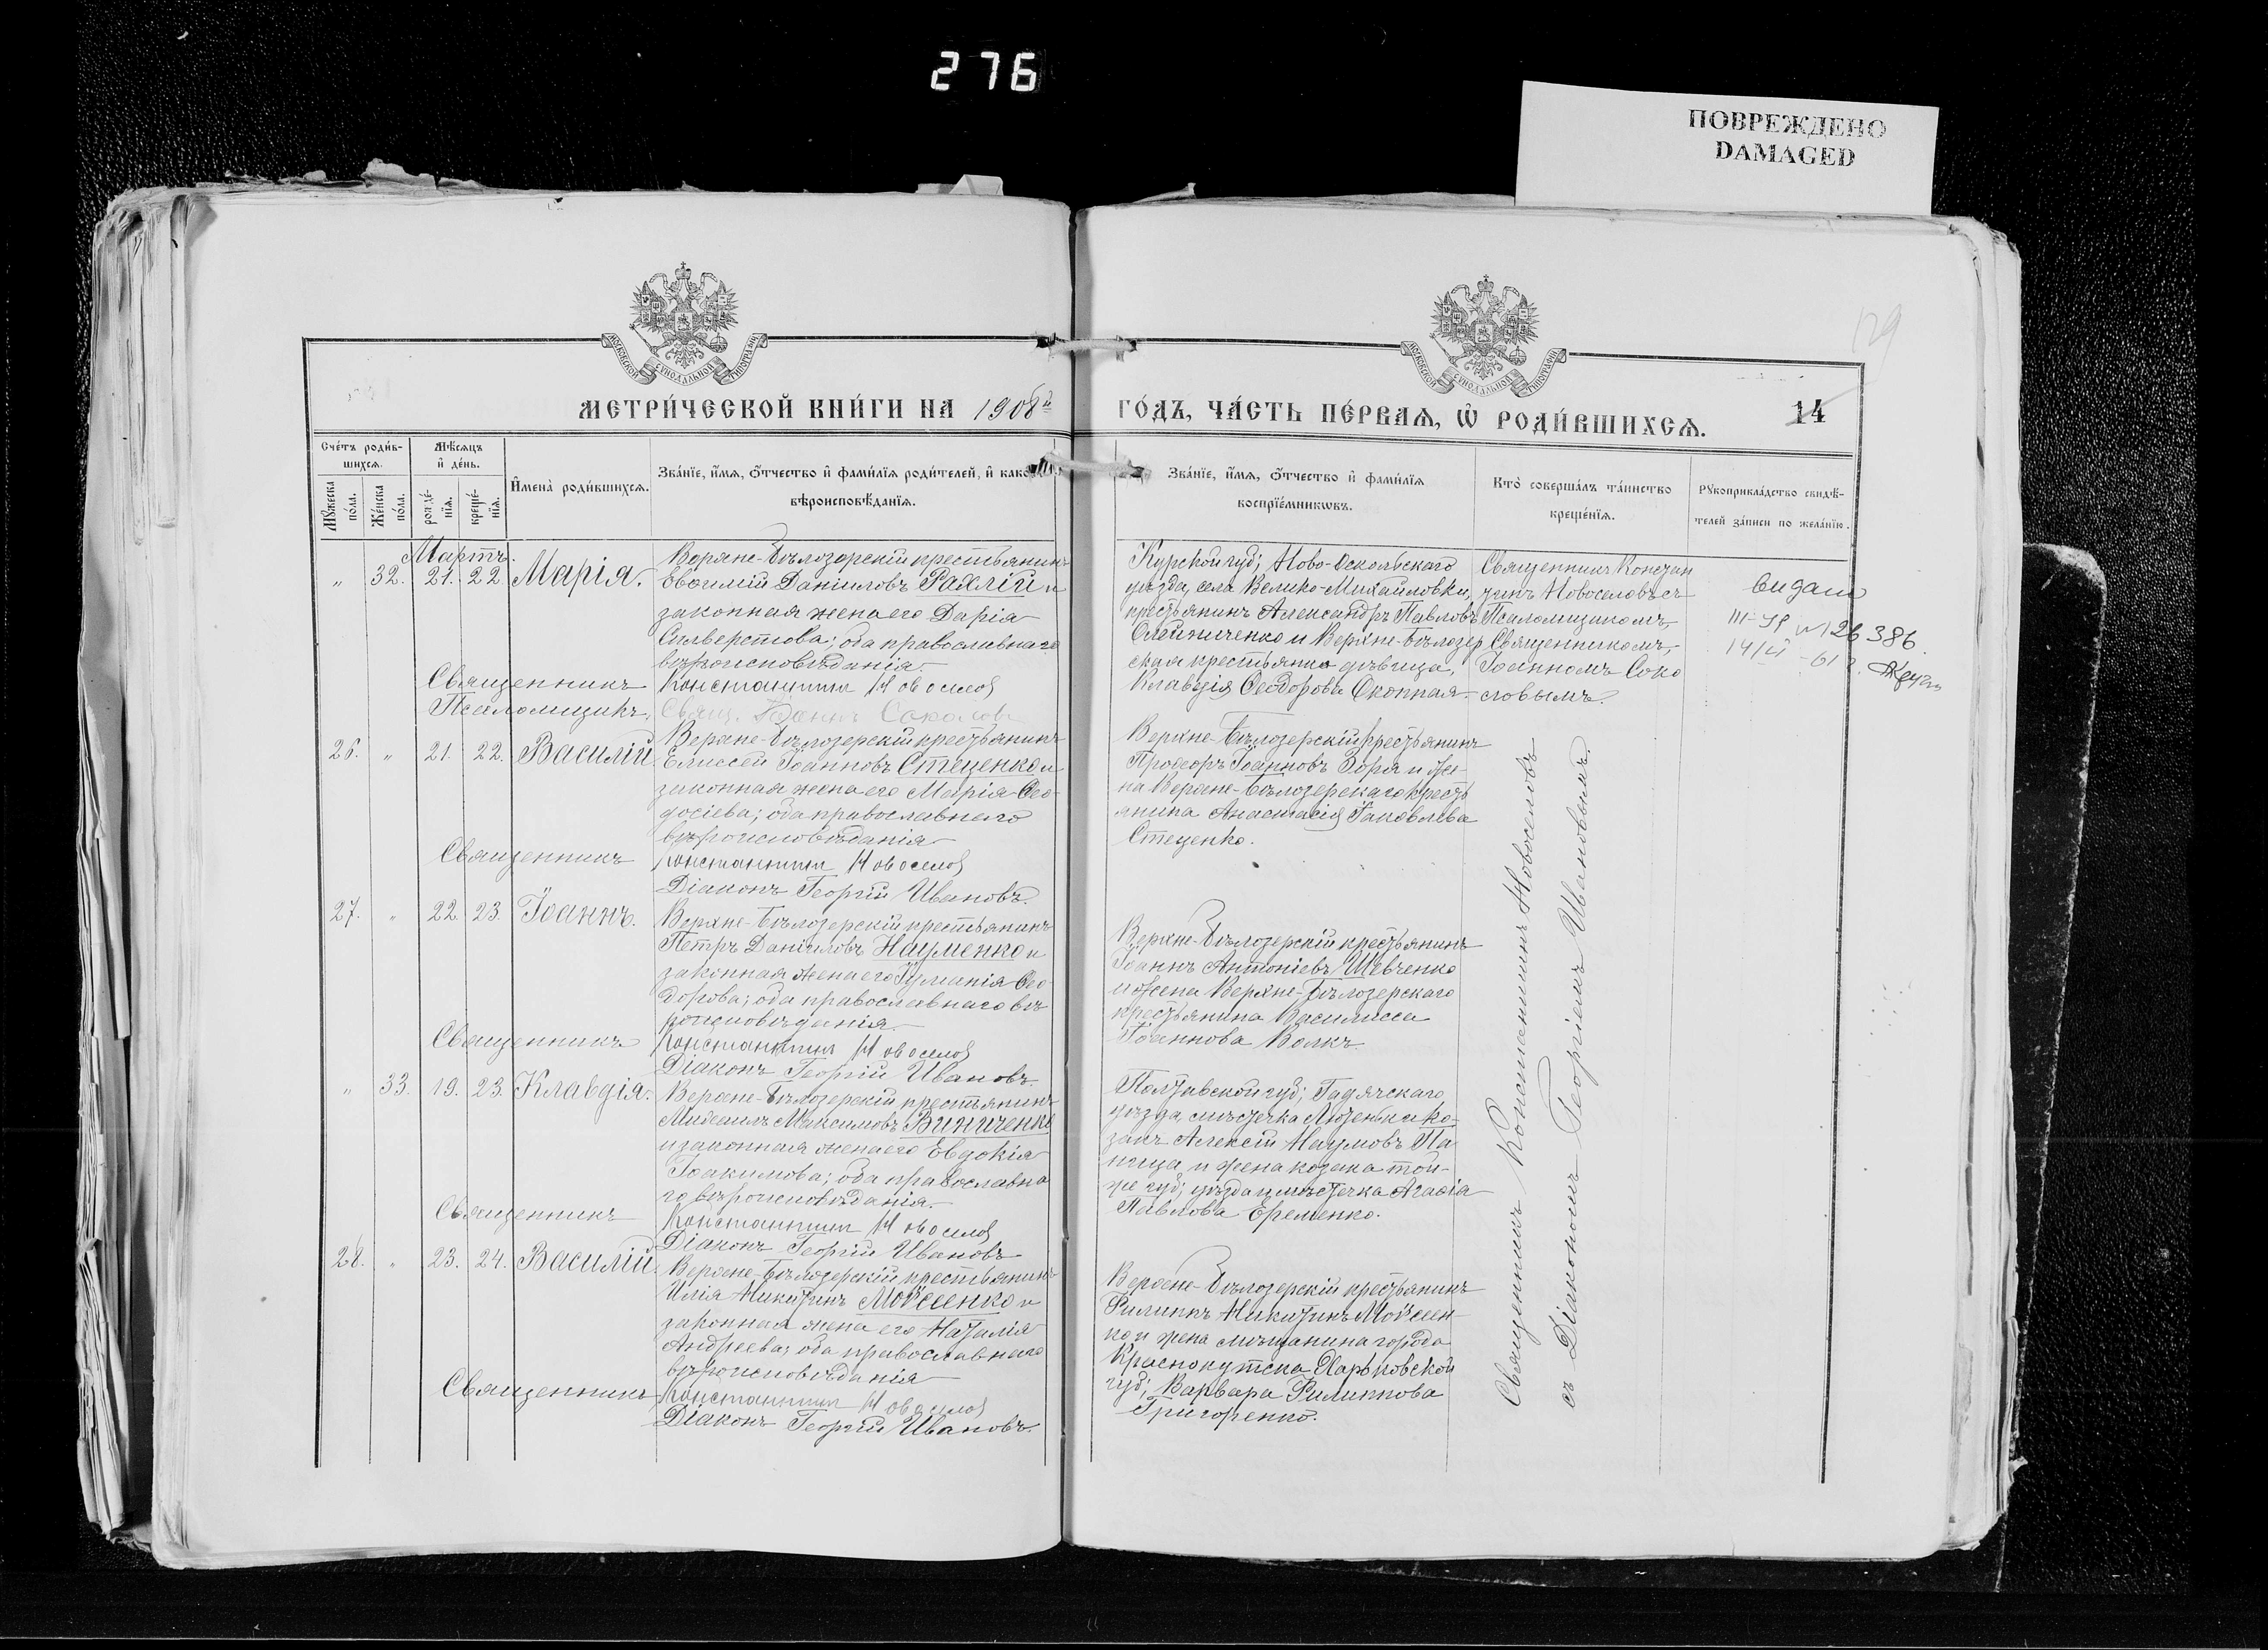 276
ПОВРЕЖДЕНО
DAMAGED
129
МОСКОВСКОЙ СѴНОДАЛЬНОЙ ТИПОГРАФІИ
МОСКОВСКОЙ СѴНОДАЛЬНОЙ ТИПОГРАФІИ
МЕТРИ́ЧЕСКОЙ КНИ́ГИ НА 1908й
ГО́ДЪ, ЧА́СТЬ ПЕ́РВАѦ, Ѡ҆ РОДИ́ВШИХСѦ.
14
Сче́тъ роди́в-
шихсѧ.
Мꙋ́жеска по́ла.
Же́нска по́ла.
Мѣ́сѧцъ
и҆ де́нь.
рожде́-
нїѧ.
креще́-
нїѧ.
И҆мена̀ роди́вшихсѧ.
Зва́нїе, и҆́мѧ, ѻ҆́тчество и҆ фами́лїѧ роди́телей, и҆ како́гѡ
вѣроисповѣ́данїѧ.
Зва́нїе, и҆́мѧ, ѻ҆́тчество и҆ фами́лїѧ
воспрїе́мникѡвъ.
Кто̀ соверша́лъ та́инство
креще́нїѧ.
Рꙋкоприкла́дство свидѣ́-
телей за́писи по жела́нїю.
Мартъ.
" 32. 21. 22 Марія.
Верхне-Бѣлозерскій крестьянинъ
Евѳимій Даніиловъ Рахлій и
законная жена его Дарія
Сильверстова; оба православнаго
вѣроисповѣданія.
Священникъ Константин Новоселов
Псаломщикъ, Свящ. Іоаннъ Соколов
Курской губ; Ново-Оскольскаго
уѣзда, села Велико-Михайловки,
крестьянинъ Александръ Павловъ
Олейниченко и Верхне-Бѣлозер
ская крестьянка дѣвица,
Клавдія Ѳеодорова Окопная.
Священникъ Констан
тинъ Новоселовъ съ
Псаломщикомъ,
Священникомъ,
Іоанномъ Соко
ловымъ.
26. " 21. 22. Василій
Верхне-Бѣлозерскій крестьянинъ
Елиссей Іоанновъ Стеценко и
законная жена его Марія Ѳео-
досіева; оба православнаго
вѣроисповѣданія
Священникъ Константин Новоселов
Діаконъ Георгій Ивановъ.
Верхне-Бѣлозерскій крестьянинъ
Прохоръ Іоанновъ Зоря и же-
на Верхне-Бѣлозерскаго кресть
янина Анастасія Іаковлева
Стеценко.
27. " 22. 23. Іоаннъ.
Верхне-Бѣлозерскій крестьянинъ
Петръ Даніиловъ Науменко и
законная жена его Іуліанія Ѳео-
дорова; оба православнаго вѣ
роисповѣданія.
Священникъ Константин Новоселов
Діаконъ Георгій Ивановъ
Верхне-Бѣлозерскій крестьянинъ
Іоаннъ Антоніевъ Шевченко
и жена Верхне-Бѣлозерскаго
крестьянина Василисса
Іоаннова Волкъ.
" 33. 19. 23. Клавдія.
Верхне-Бѣлозерскій крестьянинъ
Михаилъ Максимовъ Винниченко
и законная жена его Евдокія
Іоакимова; оба православна
го вѣроисповѣданія.
Священникъ Константин Новоселов
Діаконъ Георгій Ивановъ
Полтавской губ; Гадячскаго
уѣзда, мѣстечка Лютеньки ко-
закъ Алексій Наумовъ Па
и жена козака той-
же губ; уѣзда и мѣстечка Агаѳія
Павлова Еременко.
28. " 23. 24. Василій
Верхне-Бѣлозерскій крестьянинъ
Илія Никитинъ Моѵсеенко и
законная жена его Наталія
Андреева; оба православнаго
вѣроисповѣданія
Священникъ Константин Новоселов
Діаконъ Георгій Ивановъ.
Верхне-Бѣлозерскій крестьянинъ
Филиппъ Никитинъ Моѵсеен-
ко и жена мѣщанина города
Краснокутска Харьковской
губ; Варвара Филиппова
Григоренко.
Священникъ Константинъ Новоселовъ
съ Діакономъ Георгіемъ Ивановымъ.